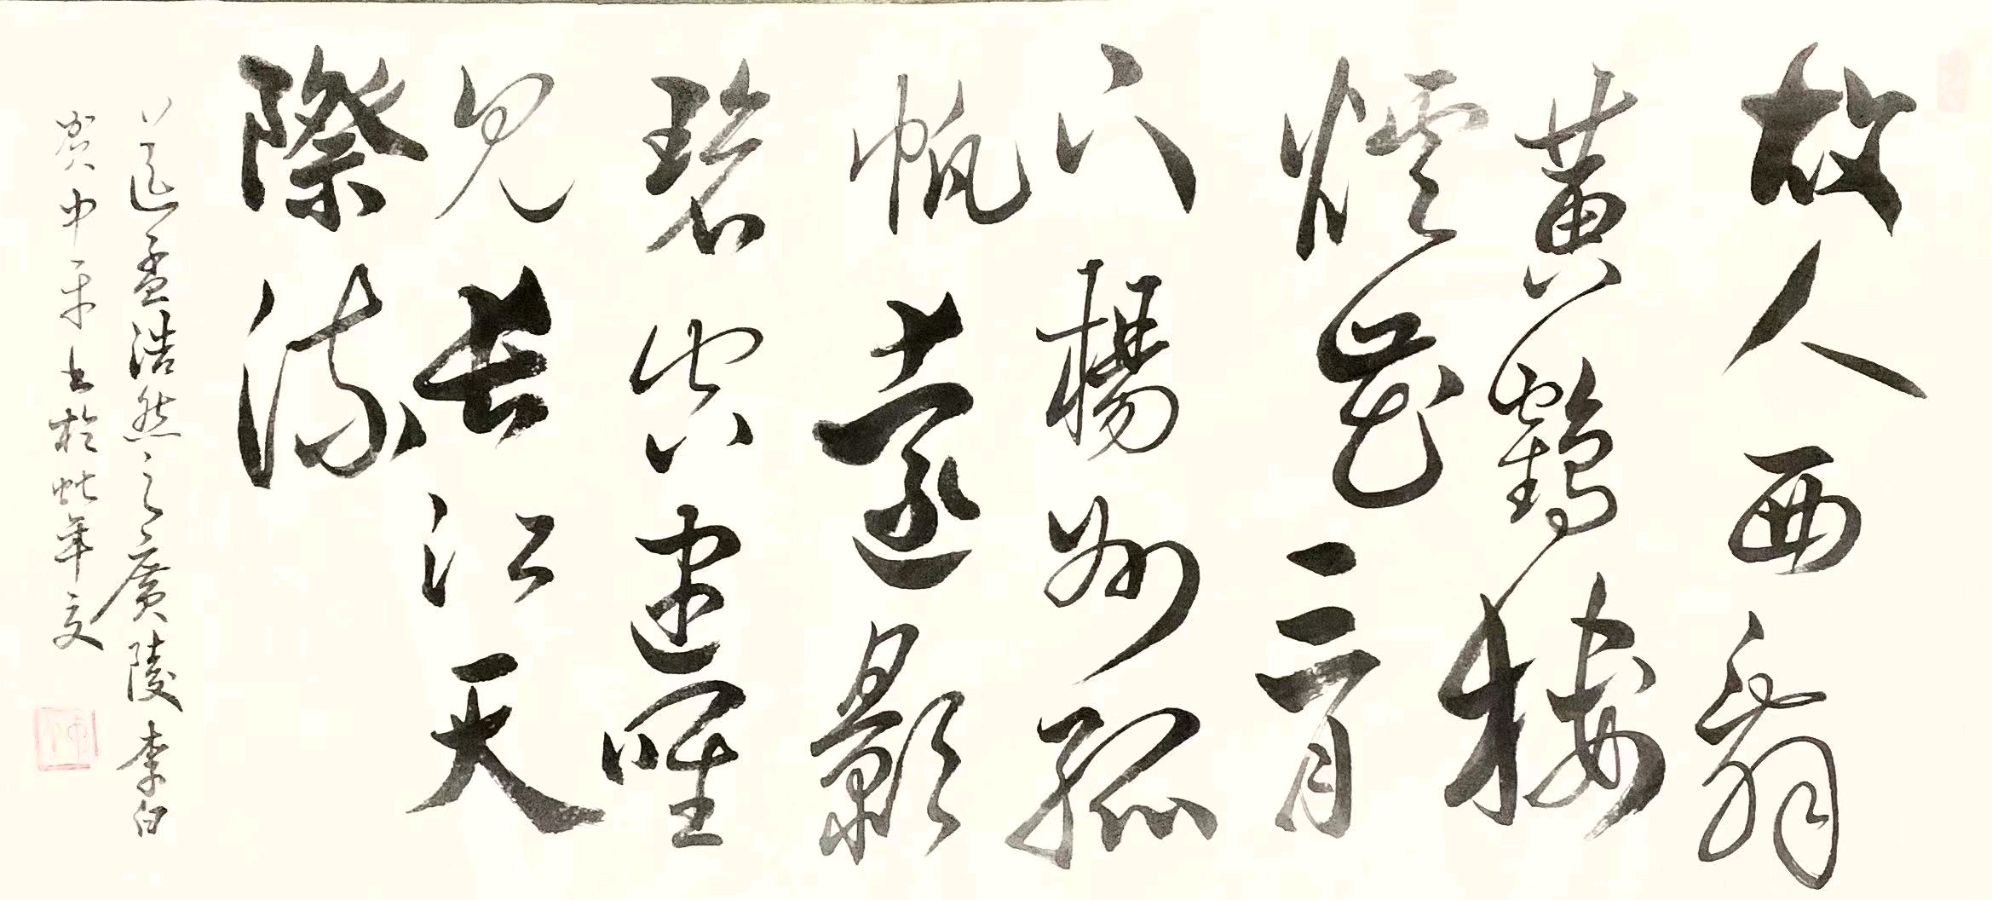 故人西辭
黃鶴樓
煙花三月
下楊州孤
帆遠影
碧空盡唯
見長江天
際流
送孟浩然之廣陵 李白
賀中平書於蛇年